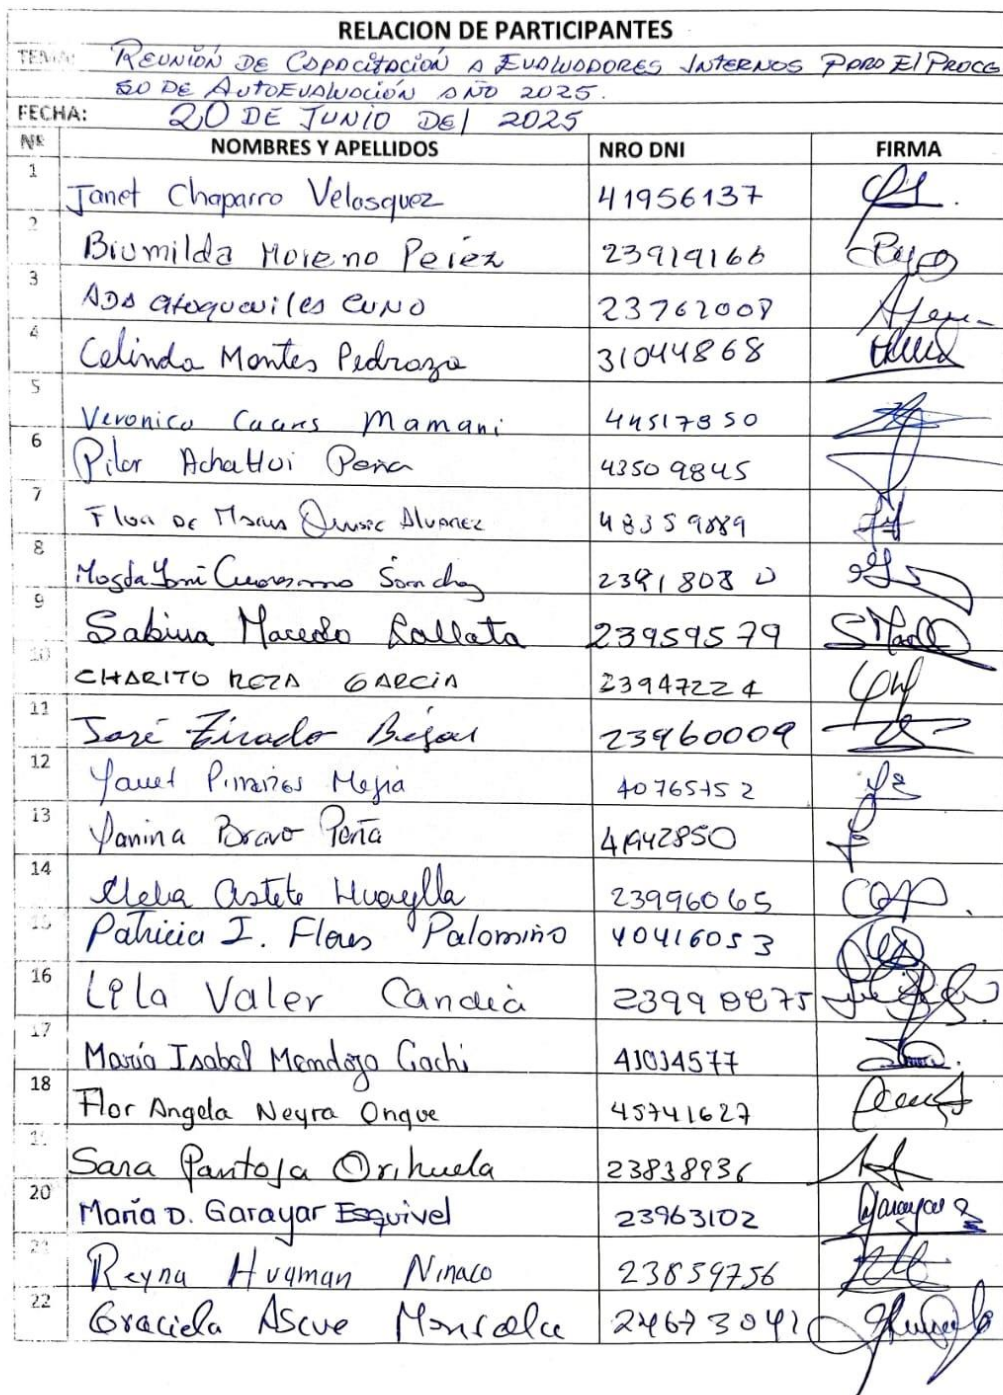 RELACION DE PARTICIPANTES
TEMA: REUNIÓN DE CAPACITACIÓN A EVALUADORES INTERNOS PARA El PROCE
SO DE AUTOEVALUACIÓN AÑO 2025.
FECHA: 20 DE JUNIO DEl 2025
Nº NOMBRES Y APELLIDOS NRO DNI FIRMA
1 Janet Chaparro Velasquez 41956137
2 Brumilda Moreno Perez 23919166
3 ADA 23762008
4 Celinda Montes Pedraza 31044868
5 Veronica Mamani 44517850
6 Pilar Achahui Peña 43509845
7 Flor DE Maria Quispe Alvarez 48359889
8 Magda Yoni Cuaresma Sanchez 23918080
9 Sabina Macedo Lallata 23959579
10 CHARITO MEZA GARCIA 23947224
11 José Tirado 23960009
12 Yanet Pimares Mejia 40765152
13 Yanina Bravo Peña 41942850
14 Clelia Astete Huaylla 23996065
15 Patricia I. Flores Palomino 40416053
16 Lila Valer Candia
17 María Isabel Mendoza Cachi 41014577
18 Flor Angela Neyra Onque 45741627
19 Sara Pantoja Orihuela 23838936
20 María D. Garayar Esquivel 23963102
21 Reyna Huaman Ninaco 23859756
22 Graciela Ascue Monrralce 24673041